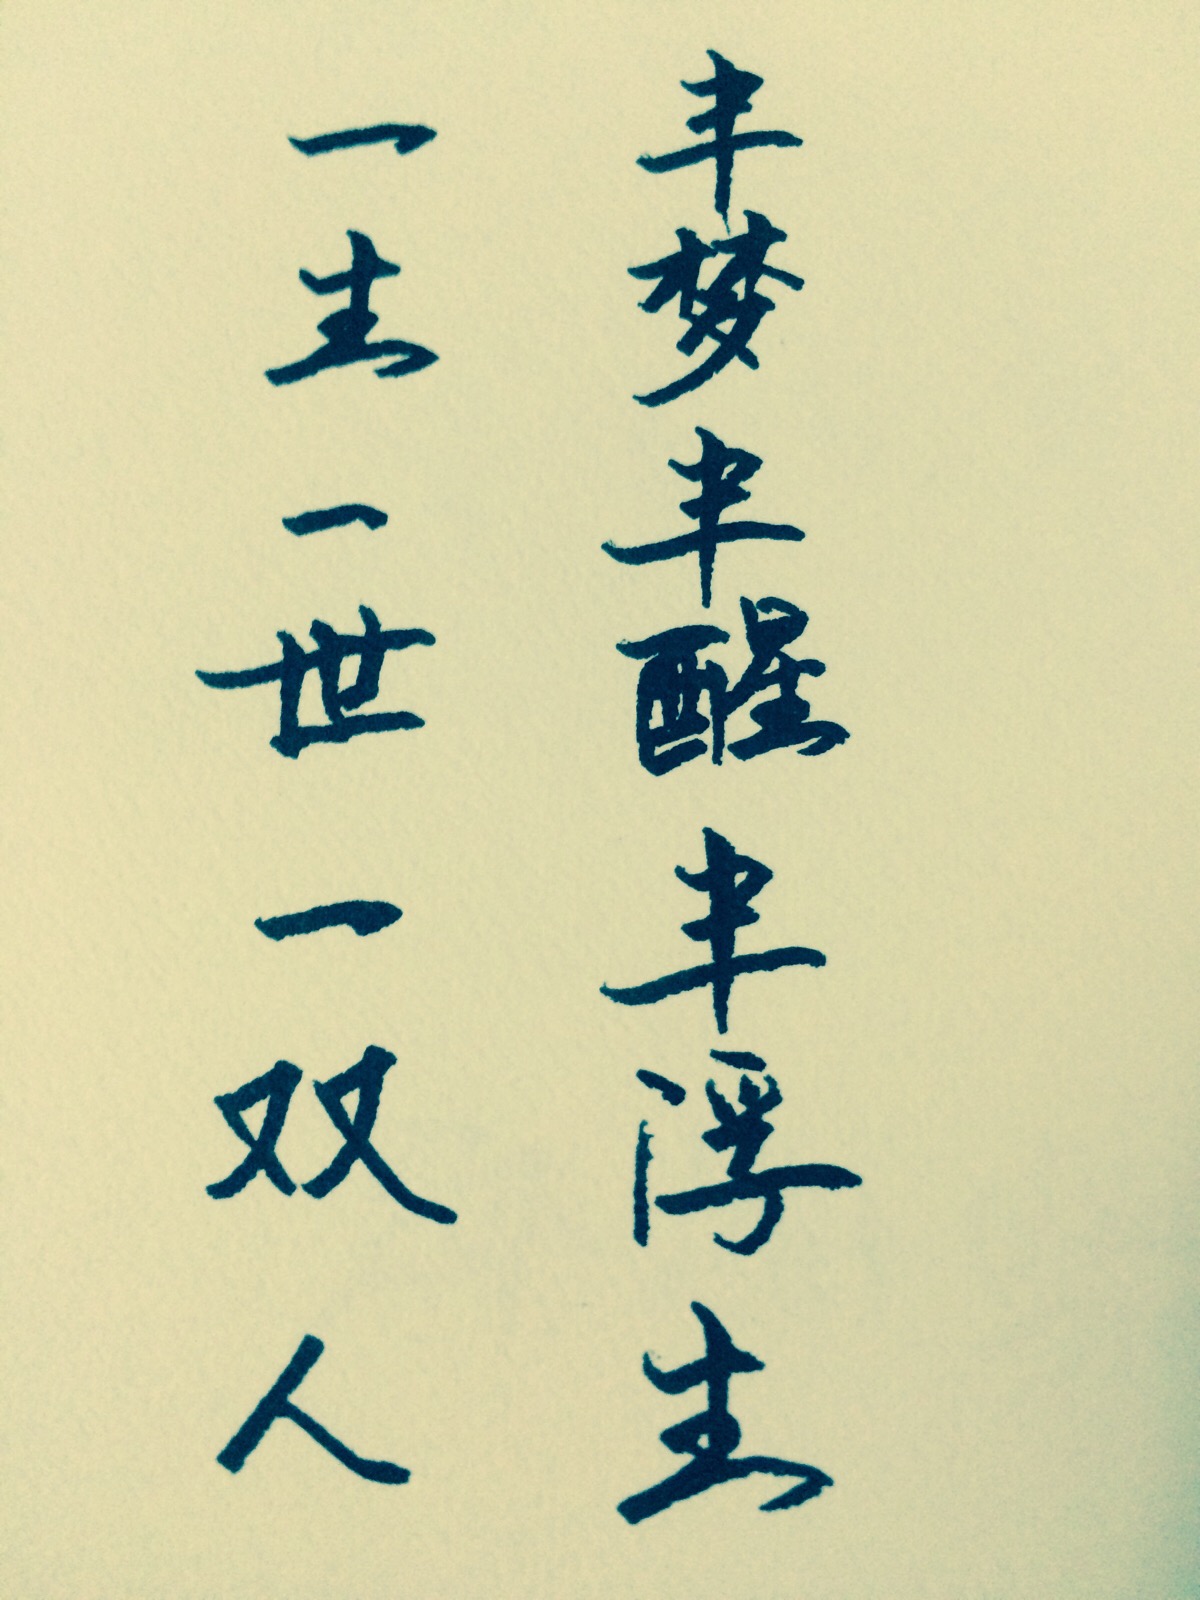 半梦半醒半浮生
一生一世一双人